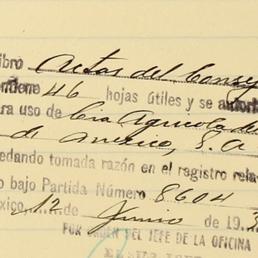 ibro Actas del Consej
ntiene 46 hojas útiles y se autoriz
ara uso de Cia Agricola de
de America, S.A
edando tomada razón en el registro rela
o bajo Partida Número 8604
xico, 12 de Junio de 19.3
POR ORDEN DEL JEFE DE LA OFICINA